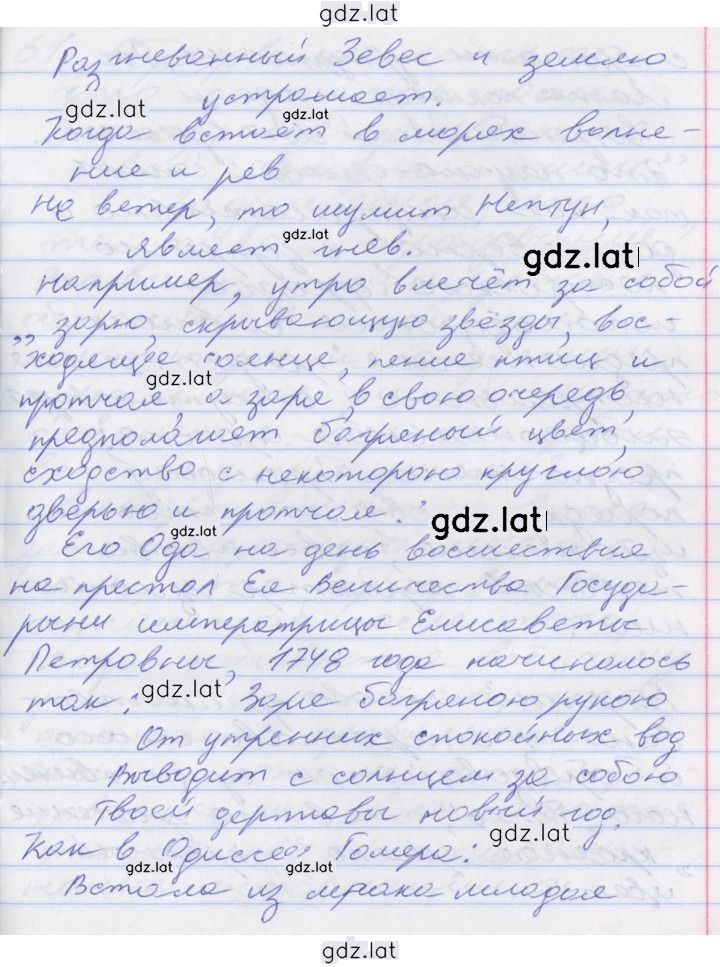 gdz.lat
Разгневанный Зевес и землю
gdz.lat устрашает. gdz.lat
Когда встаёт в морях волне-
ние и рев
Не ветер, то шумит Нептун,
являет gdz.lat гнев. gdz.lat
Например, утро влечёт за собой
„зарю, скрывающую звёзды, вос-
ходящее солнце, пение птиц и
gdz.lat
протчая, а заря, в свою очередь,
предполагает багряный цвет,
сходство с некоторою круглою
дверью и протчая." gdz.lat
gdz.lat
Его Ода на день восшествия
на престол Ея Величества Госуда-
рыни императрицы Елисаветы
Петровны, 1748 года начиналось
так: gdz.lat Заря багряною рукою
От утренних спокойных вод
Выводит с солнцем за собою
Твоей державы новый год.
gdz.lat
Как в Одиссее Гомера:
gdz.lat gdz.lat
Встала из мрака младая
gdz.lat